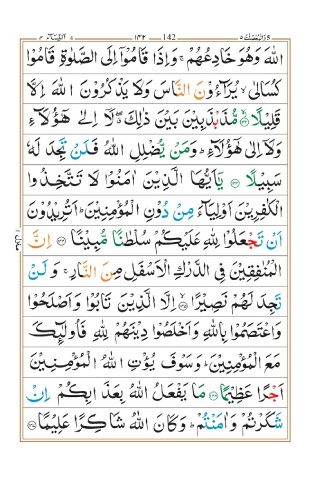 النسآء ٤ ١٤٢ 142 والمحصنت ٥
اللّٰهَ وَهُوَ خَادِعُهُمْ ۚ وَاِذَا قَامُوْۤا اِلَى الصَّلٰوةِ قَامُوْا
كُسَالٰى ۙ يُرَآءُوْنَ النَّاسَ وَلَا يَذْكُرُوْنَ اللّٰهَ اِلَّا
قَلِيْلًا ۙ﴿۱۴۲﴾ مُّذَبْذَبِيْنَ بَيْنَ ذٰلِكَ ۖ لَاۤ اِلٰى هٰۤؤُلَآءِ
وَلَاۤ اِلٰى هٰۤؤُلَآءِ ؕ وَمَنْ يُّضْلِلِ اللّٰهُ فَلَنْ تَجِدَ لَهٗ
سَبِيْلًا ﴿۱۴۳﴾ يٰۤاَيُّهَا الَّذِيْنَ اٰمَنُوْا لَا تَتَّخِذُوا
الْكٰفِرِيْنَ اَوْلِيَآءَ مِنْ دُوْنِ الْمُؤْمِنِيْنَ ؕ اَتُرِيْدُوْنَ
اَنْ تَجْعَلُوْا لِلّٰهِ عَلَيْكُمْ سُلْطٰنًا مُّبِيْنًا ﴿۱۴۴﴾ اِنَّ
الْمُنٰفِقِيْنَ فِى الدَّرْكِ الْاَسْفَلِ مِنَ النَّارِ ۚ وَلَنْ
تَجِدَ لَهُمْ نَصِيْرًا ۙ﴿۱۴۵﴾ اِلَّا الَّذِيْنَ تَابُوْا وَاَصْلَحُوْا
وَاعْتَصَمُوْا بِاللّٰهِ وَاَخْلَصُوْا دِيْنَهُمْ لِلّٰهِ فَاُولٰٓئِكَ
مَعَ الْمُؤْمِنِيْنَ ؕ وَسَوْفَ يُؤْتِ اللّٰهُ الْمُؤْمِنِيْنَ
اَجْرًا عَظِيْمًا ﴿۱۴۶﴾ مَا يَفْعَلُ اللّٰهُ بِعَذَابِكُمْ اِنْ
شَكَرْتُمْ وَاٰمَنْتُمْ ؕ وَكَانَ اللّٰهُ شَاكِرًا عَلِيْمًا ﴿۱۴۷﴾
منزل ١